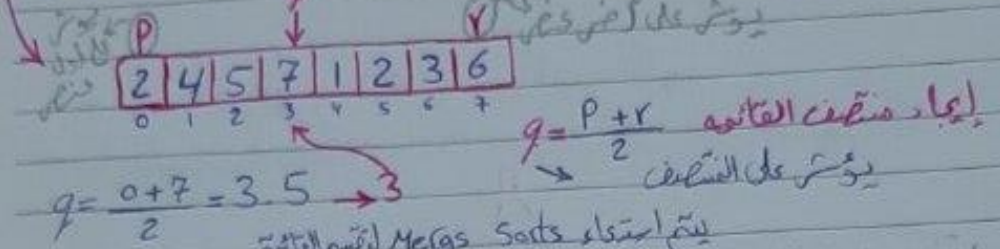 P r يؤشر على آخر عنصر
2 4 5 7 1 2 3 6
0 1 2 3 4 5 6 7
q = P + r / 2 إيجاد منتصف القائمه
يؤشر على المنتصف
q = 0 + 7 / 2 = 3.5 → 3
يتم استدعاء Meras Sorts